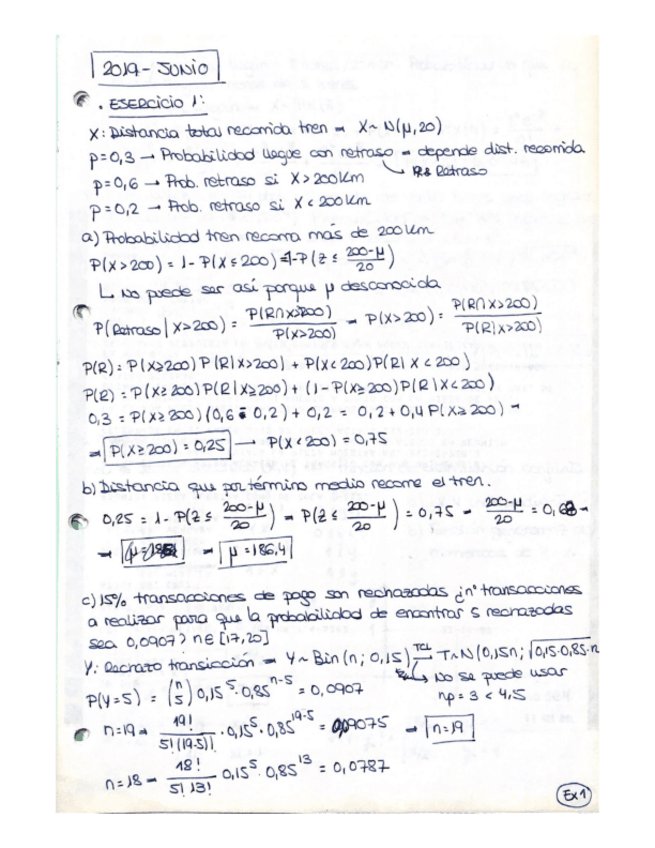 2019 - JUNIO
· EJERCICIO 1:
X: Distancia total recorrida tren → X ~ N(μ, 20)
p=0,3 → Probabilidad llegue con retraso → depende dist. recorrida
↳ R: Retraso
p=0,6 → Prob. retraso si X > 200 km
p=0,2 → Prob. retraso si X < 200 km
a) Probabilidad tren recorra más de 200 km
P(X>200) = 1 - P(X≤200) = 1-P(Z ≤ (200-μ)/20)
↳ No puede ser así porque μ desconocida
P(Retraso | X>200) = P(R∩X>200)/P(X>200) → P(X>200) = P(R∩X>200)/P(R|X>200)
P(R) = P(X≥200) P(R|X>200) + P(X<200) P(R|X<200)
P(R) = P(X≥200) P(R|X≥200) + (1 - P(X≥200)) P(R|X<200)
0,3 = P(X≥200) (0,6 - 0,2) + 0,2 = 0,2 + 0,4 P(X≥200) →
→ P(X≥200) = 0,25 → P(X<200) = 0,75
b) Distancia que por término medio recorre el tren.
0,25 = 1 - P(Z ≤ (200-μ)/20) → P(Z ≤ (200-μ)/20) = 0,75 → (200-μ)/20 = 0,68 →
→ μ = 186,4
c) 15% transacciones de pago son rechazadas ¿nº transacciones
a realizar para que la probabilidad de encontrar 5 rechazadas
sea 0,0907? n∈[17,20]
Y: Rechazo transacción → Y ~ Bin(n; 0,15) TCL→ T~N(0,15n; √0,15·0,85·n
↳ No se puede usar
np = 3 < 4,5
P(Y=5) = (n 5) 0,15⁵ · 0,85ⁿ⁻⁵ = 0,0907
n=19 → 19!/(5!(19-5)!) · 0,15⁵ · 0,85¹⁹⁻⁵ = 0,09075 → n=19
n=18 → 18!/(5! 13!) 0,15⁵ · 0,85¹³ = 0,0787
Ex1